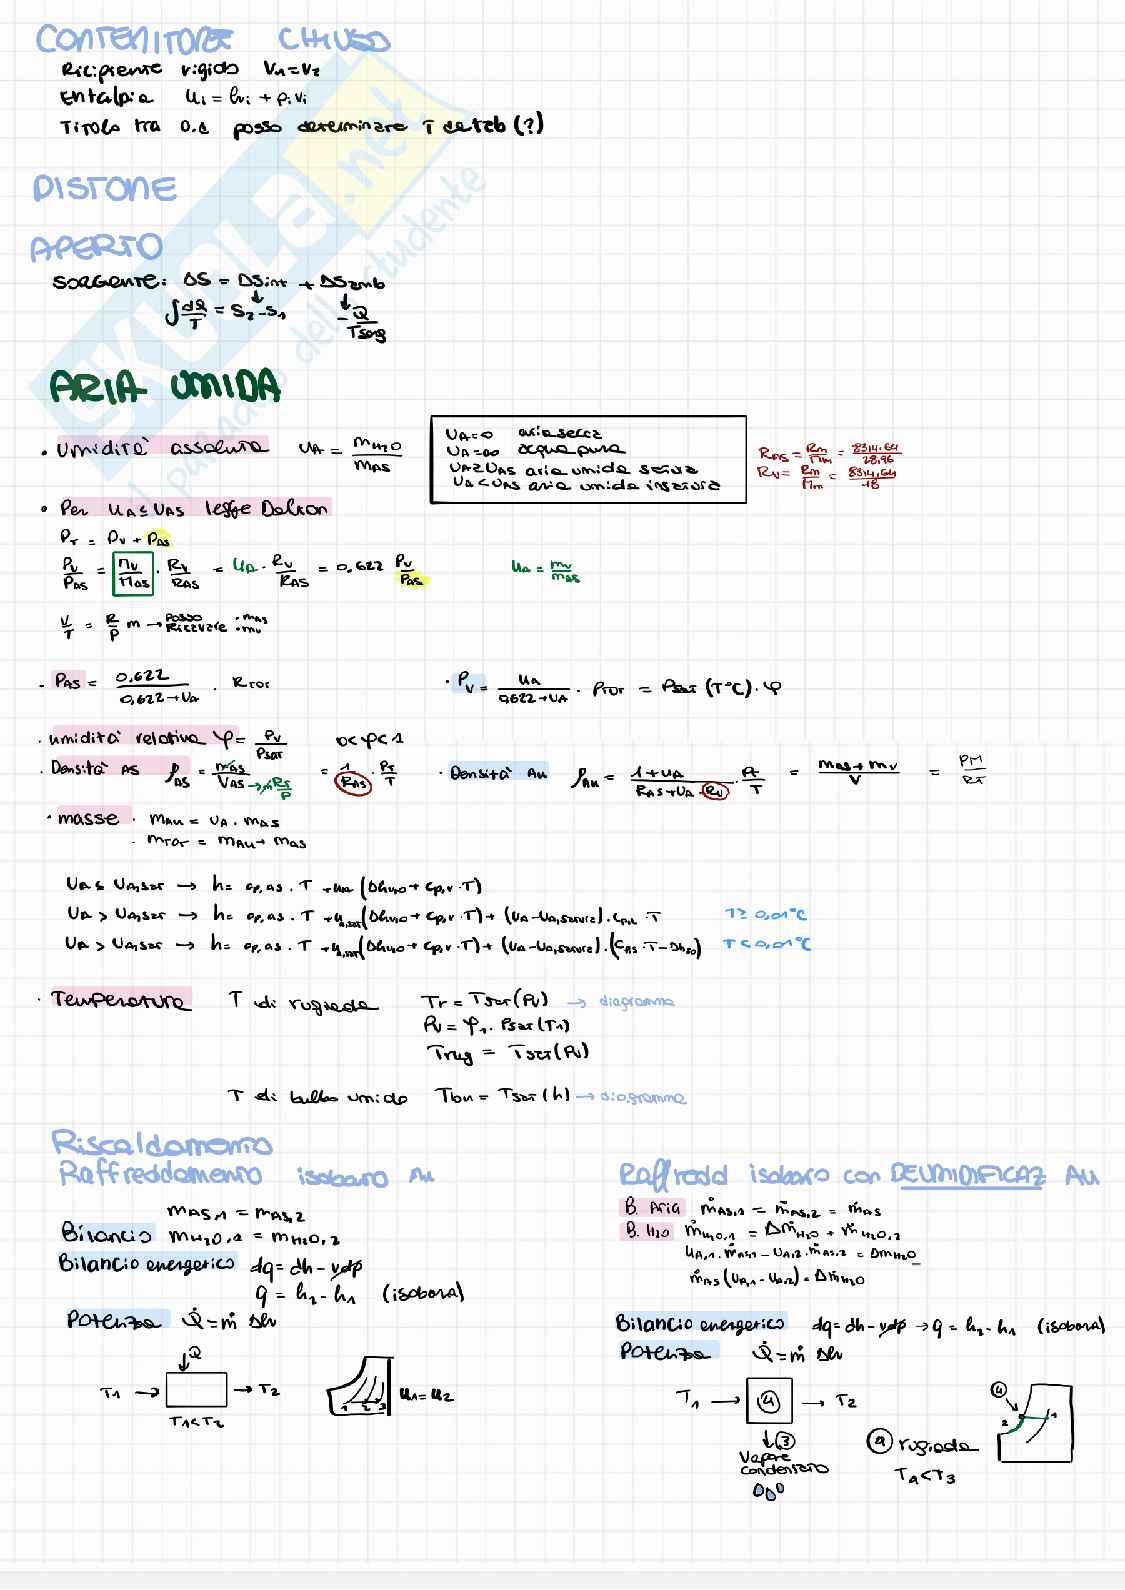 CONTENITORE CHIUSO
Recipiente rigido V₁=V₂
Entalpia uᵢ = hᵢ + pᵢvᵢ
Titolo tra 0.1 posso determinare T da tab (?)
PISTONE
APERTO
SORGENTE: ΔS = ΔSint + ΔSamb
∫dQ/T = S₂-S₁ -Q/Tsorg
ARIA UMIDA
• Umidità assoluta UA = mH₂O/mAS
UA=0 aria secca
UA=∞ acqua pura
UA≥UAS aria umida satura
UA<UAS aria umida insatura
RAS = Rm/Mm = 8314,64/28,96
RV = Rm/Mm = 8314,64/18
• Per UA≤UAS legge Dalton
PT = PV + PAS
PV/PAS = MV/MAS · RV/RAS = UA · RV/RAS = 0,622 PV/PAS
UA = mv/mAS
V/T = R/P m → posso ricavare · mAS · mv
· PAS = 0,622/0,622+UA · PTOT
· PV = UA/0,622+UA · PTOT = Psat (T°C) · φ
· umidità relativa φ = PV/Psat 0<φ<1
· Densità AS ρAS = mAS/VAS → mRT/P = 1/RAS · PT/T
· Densità AU ρAU = 1+UA/RAS+UA·RV · PT/T = mAS+mV/V = PM/RT
· masse · mAU = UA · mAS
· mTOT = mAU + mAS
UA ≤ UA,sat → h = cp,as · T + ua (ΔhH₂O + cp,v · T)
UA > UA,sat → h = cp,as · T + ua,sat (ΔhH₂O + cp,v · T) + (UA-UA,satura) · cp,L · T T ≥ 0,01°C
UA > UA,sat → h = cp,as · T + ua,sat (ΔhH₂O + cp,v · T) + (UA-UA,satura) · (cAS · T - Δhso) T < 0,01°C
· Temperatura T di rugiada Tr = Tsat(PV) → diagramma
PV = φ₁ · Psat(T₁)
Trug = Tsat(PV)
T di bulbo umido Tbu = Tsat (h) → diagramma
Riscaldamento
Raffreddamento isobaro AU
mAS,1 = mAS,2
Bilancio mH₂O,1 = mH₂O,2
Bilancio energetico dq = dh - vdp
q = h₂ - h₁ (isobara)
Potenza Q̇ = ṁ Δh
Q
T₁ → → T₂
T₁<T₂
1 2 3
u₁ = u₂
Raffredd isobaro con DEUMIDIFICAZ AU
B. Aria ṁAS,1 = ṁAS,2 = ṁAS
B. H₂O ṁH₂O,1 = ΔṁH₂O + ṁH₂O,2
UA,1 · ṁAS,1 - UA,2 · ṁAS,2 = ΔmH₂O
ṁAS (UA,1 - UA,2) = ΔṁH₂O
Bilancio energetico dq = dh - vdp → q = h₂ - h₁ (isobara)
Potenza Q̇ = ṁ Δh
T₁ → 4 → T₂
↓ 3
Vapore
condensato
4
2 1
rugiada
T₄<T₃
SKUOLA.net
il paradiso dello studente